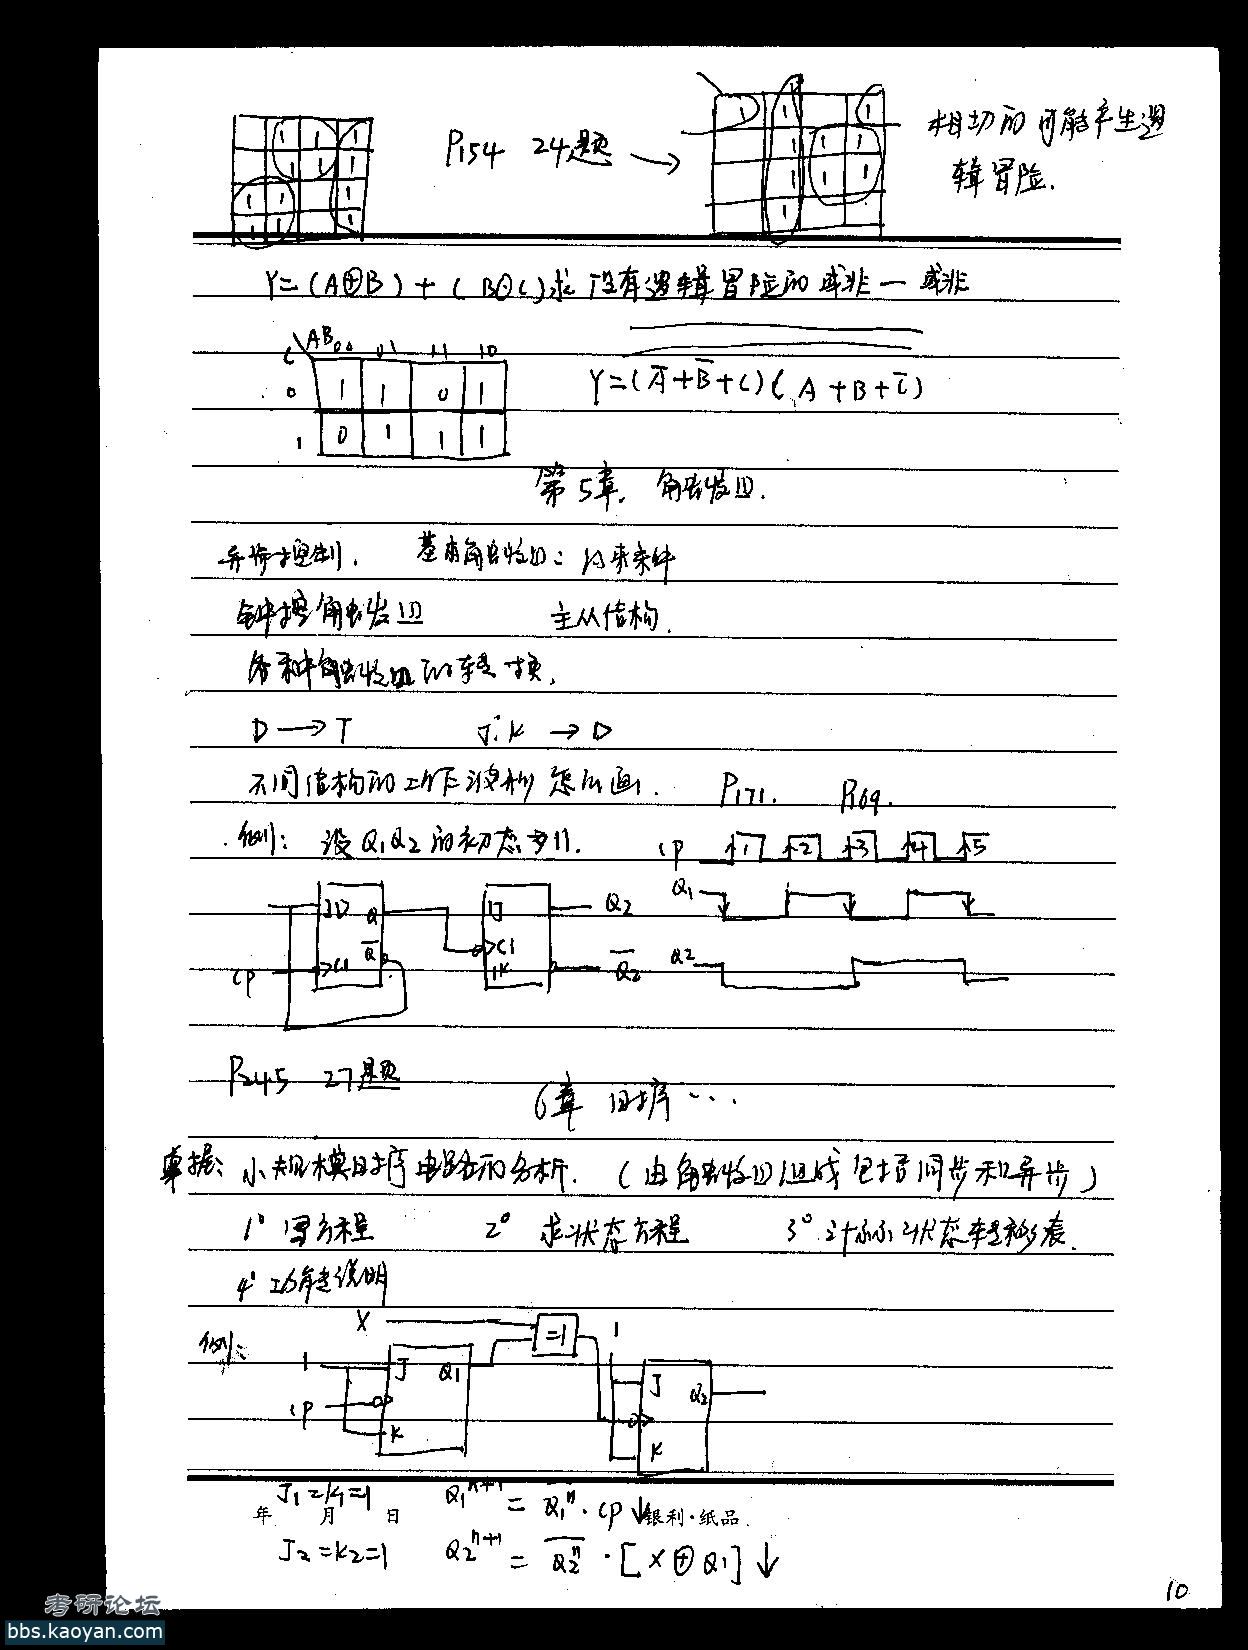 P154 24题 → 相切的可能产生逻
辑冒险.
Y=(A⊕B)+(B⊙C)求没有逻辑冒险的或非—或非
C\AB 00 01 11 10
0 1 1 0 1
1 0 1 1 1
Y=(A̅+B̅+C)(A+B+C̅)
第5章. 触发器.
异步控制. 基本触发器: 约束条件
钟控触发器 主从结构.
各种触发器的转换.
D → T J.K → D
不同结构的工作波形怎么画. P171. P169.
例: 设Q1Q2的初态为11. CP 1 2 3 4 5
1D Q Q̅ C1 CP
1J C1 1K Q2 Q̅2
Q1
Q2
P245 27题
6章 时序...
掌握: 小规模时序电路的分析. (由触发器组成包括同步和异步)
1° 写方程 2° 求状态方程 3° 计算状态转移表.
4° 功能说明
例: X =1 1
1 J Q1 CP K
J Q2 K
J1=K1=1 Q1ⁿ⁺¹ = Q̅1ⁿ · CP↓
年 月 日 银利·纸品
J2=K2=1 Q2ⁿ⁺¹ = Q̅2ⁿ · [X⊕Q1]↓
10
考研论坛
bbs.kaoyan.com